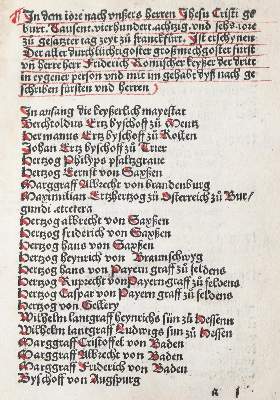 In dem iore nach vnßers herren Jhesu Cristi ge
burt. Tausent. vierhundert. achtzig. vnd sehs. iore
zů gesatzter tag zeyt zů franckfurt. Ist erschynen
Der aller durchlüchtigoster großmechtoster fürst
vñ herre herr Friderich Romischer keyßer der dritt
in eygener person vnd mit im gehabt dyß nach ge
schriben fürsten vnd herren
In anfang die keyßerlich mayestat
Berchtoldus Ertz byschoff zů Mentz
Hermanus Ertz byschoff zů Kollen
Johan Ertz byschoff zů Trier
Hertzog Philyps pfaltzgraue
Hertzog Ernst von Saxßen
Marggraff Albrecht von brandenburg
Maximilian Ertzhertzog zů Osterreich zů Bur
gundi .etcetera
Hertzog albrecht von Saxßen
Hertzog friderich von Saxßen
Hertzog hans von Saxßen
Hertzog heynrich von Braunschwyg
Hertzog hans von Payern graff zů feldens
Hertzog Ruprecht von Payern graff zů feldens
Hertzog Caspar von Payern graff zů feldens
Hertzog von Gellern
Wilhelm lantgraff heynrichs sün zů Hessenn
Wilhelm lantgraff Ludwigs sün zů Hessen
Marggraff Cristoffel von Baden
Marggraff Albrecht von Baden
Marggraff Friderich von Baden
Byschoff von Augspurg